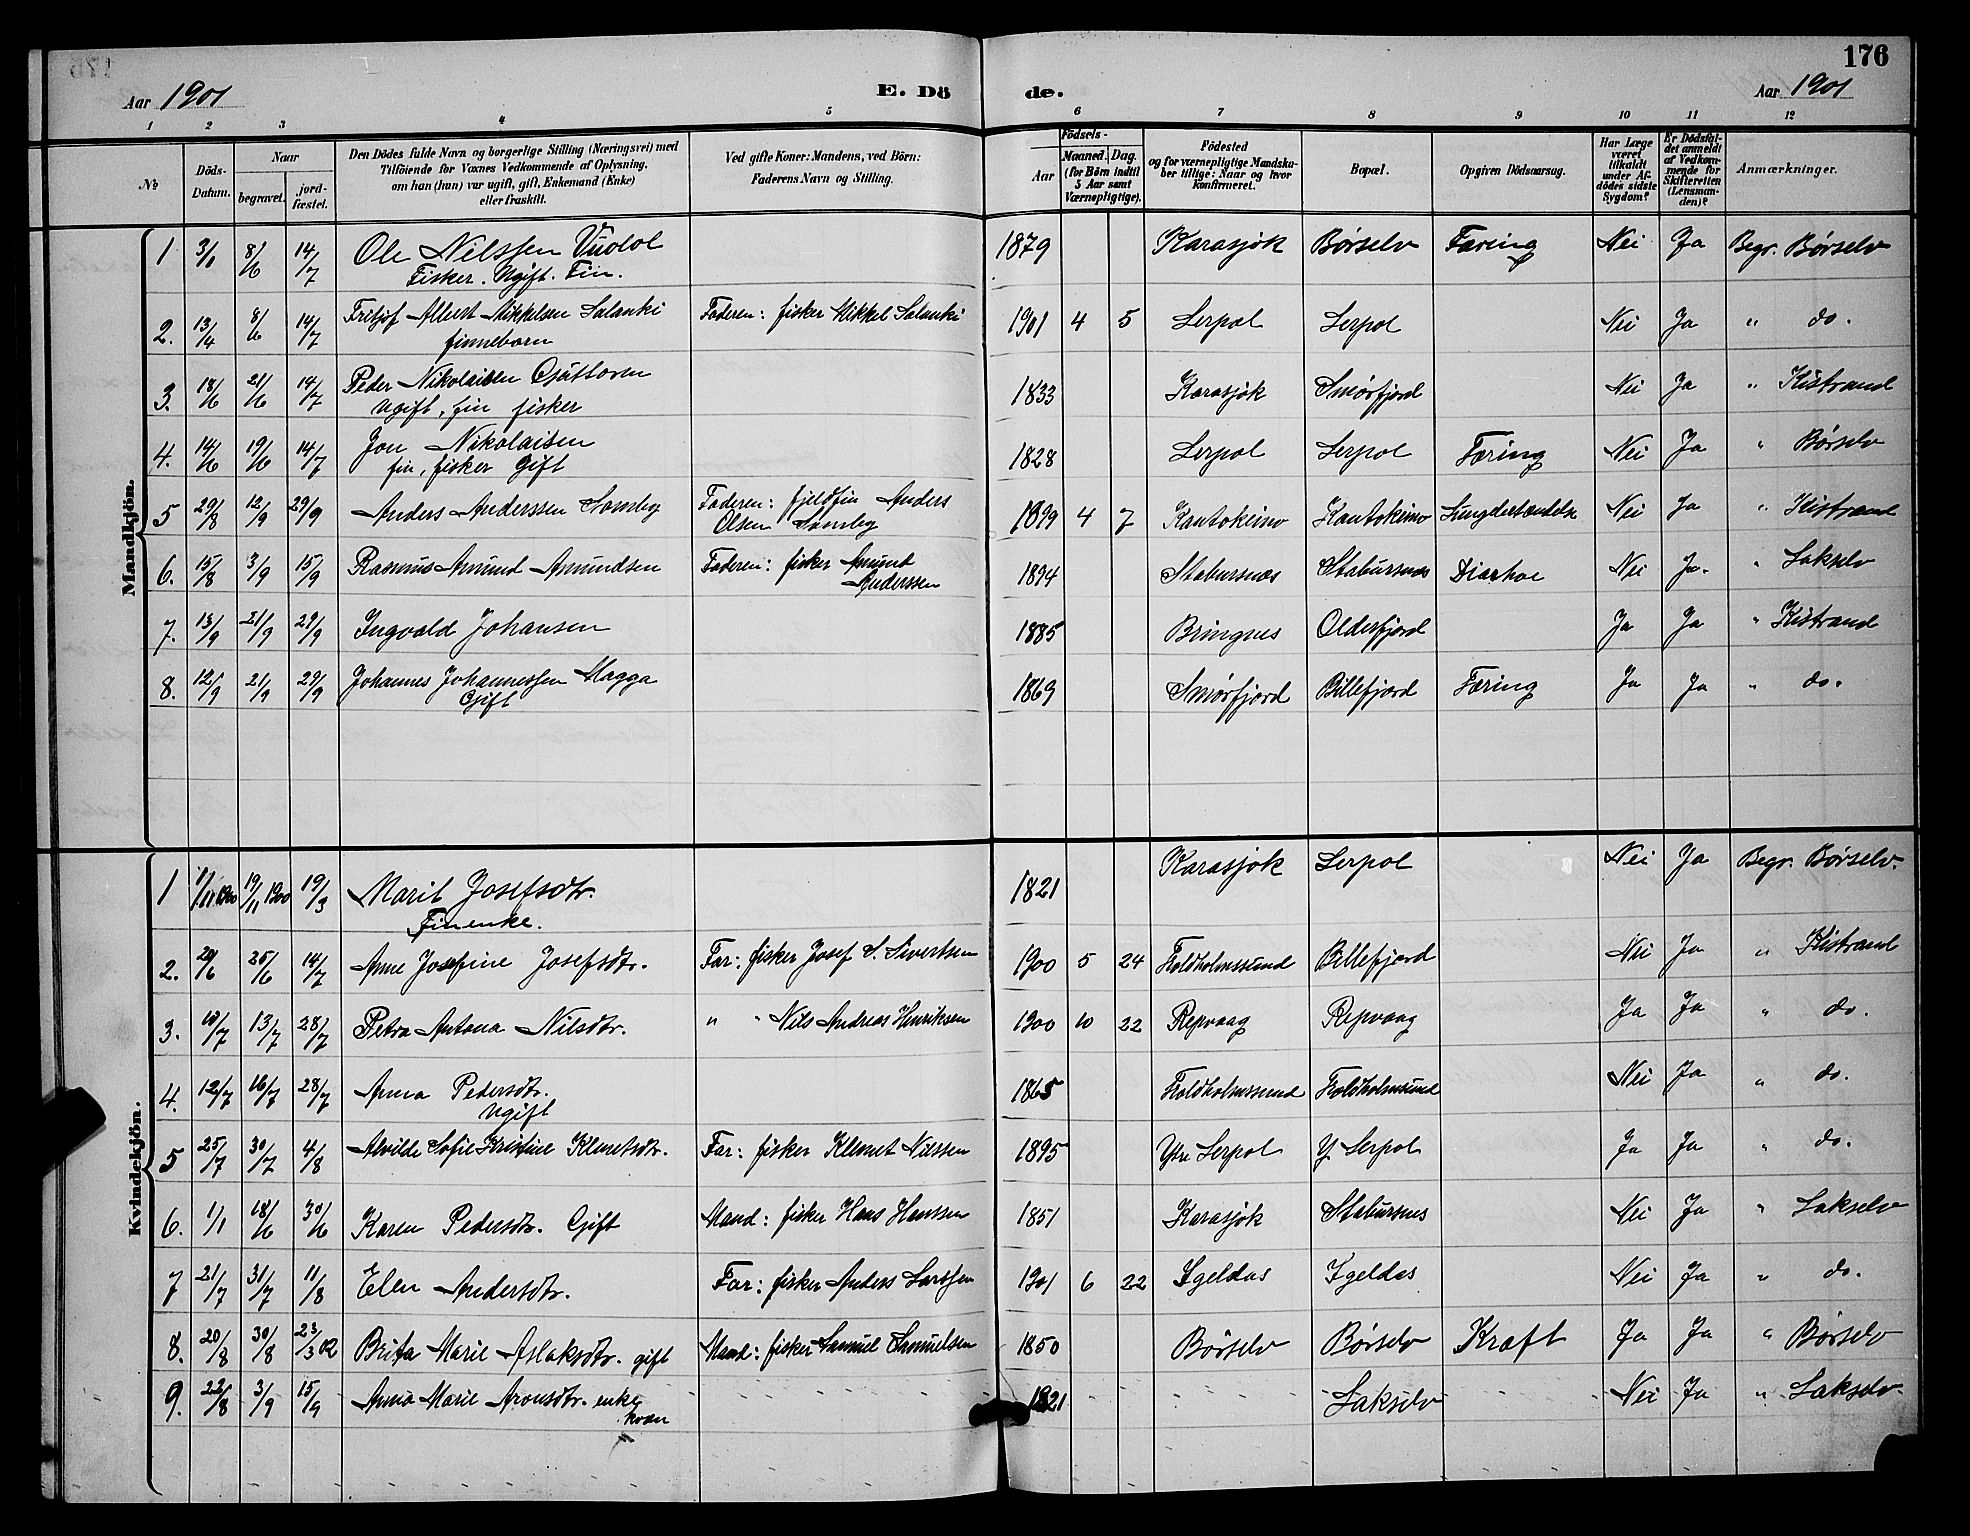 176
Aar 1901
E. Dö
de.
Aar 1901
1 2 3 4 5 6 7 8 9 10 11 12
№
Döds-Datum.
Naar
begravet.
jord-fæstet.
Den Dödes fulde Navn og borgerlige Stilling (Næringsvei) med
Tilföiende for Voxnes Vedkommende af Oplysning,
om han (hun) var ugift, gift, Enkemand (Enke)
eller fraskilt.
Ved gifte Koner: Mandens, ved Börn:
Faderens Navn og Stilling.
Födsels-
Aar
Maaned. Dag.
(for Börn indtil
5 Aar samt
Værnepligtige).
Födested
og for værnepligtige Mandska-
ber tillige: Naar og hvor
konfirmeret.
Bopæl.
Opgiven Dödsaarsag.
Har Læge
været
tilkaldt
under Af-
dödes sidste
Sygdom?
Er Dödsfal-
det anmeldt
af Vedkom-
mende for
Skifteretten
(Lensman-
den)?
Anmærkninger.
Mandkjön.
1 3/1 8/6 14/7 Ole Nilssen Vuolol 1879 Karasjok Børselv Tæring Nei Ja Begr. Børselv
Fisker. Ugift. Fin.
2. 13/4 8/6 14/7 Fritjof Albert Mikkelsen Salanki Faderen: fisker Mikkel Salanki 1901 4 5 Lerpol Lerpol Nei Ja " do.
finnebarn
3. 18/6 21/6 14/7 Peder Nikolaisen 1833 Karasjok Smørfjord Nei Ja " Kistrand
ugift, fin fisker
4. 14/6 19/6 14/7 Jon Nikolaisen 1828 Lerpol Lerpol Tæring Nei Ja " Børselv
fin, fisker Gift
5 29/8 12/9 29/9 Anders Anderssen Somby Faderen: fjeldfin Anders 1899 4 7 Kautokeino Kautokeino Lungebetændelse Nei Ja " Kistrand
Olsen Somby
6. 15/8 3/9 15/9 Rasmus Amund Amundsen Faderen: fisker Amund 1894 Stabursnæs Stabursnæs Diarhoe Nei Ja. " Lakselv
Anderssen
7. 13/9 21/9 29/9 Ingvald Johansen 1885 Bringnes Olderfjord Ja Ja " Kistrand
8. 12/9 21/9 29/9 Johannes Johannessen Magga 1869 Smørfjord Billefjord Tæring Ja Ja " do.
Gift
Kvindekjön.
1 1/11 1900 19/11 1900 19/3 Marit Josefsdtr. 1821 Karasjok Lerpol Nei Ja Begr. Børselv.
Finenke.
2. 20/6 25/6 14/7 Anne Josefine Josefsdtr. Far: fisker Josef S. Sivertsen 1900 5 24 Koldholmssund Billefjord Nei Ja " Kistrand
3. 10/7 13/7 28/7 Petra Antona Nilsdtr. " " Nils Andreas Henriksen 1900 10 22 Repvaag Repvaag Ja Ja " do.
4. 12/7 16/7 28/7 Anna Pedersdtr. 1865 Koldholmssund Koldholmsund Nei Ja " do.
Ugift
5 25/7 30/7 4/8 Alvilde Sofie Kristine Klemetsdtr. Far: fisker Klemet Nilssen 1895 Ytre Lerpol Y. Lerpol Ja Ja " do.
6. 1/1 18/6 30/6 Karen Pedersdtr. Gift Mand: fisker Hans Hanssen 1851 Karasjok Stabursnes Nei Ja " Lakselv
7 21/7 31/7 11/8 Elen Andersdtr. Far: fisker Anders Larssen 1901 6 22 Igeldas Igeldas Nei Ja " do.
8. 20/8 30/8 23/3 02 Brita Marie Aslaksdtr. gift Mand: fisker Samuel Samuelsen 1850 Børselv Børselv Kræft Ja Ja " Børselv
9. 22/8 3/9 15/9 Anna Marie Aronsdtr. enke 1821 Lakselv Nei Ja " Lakselv.
kvæn